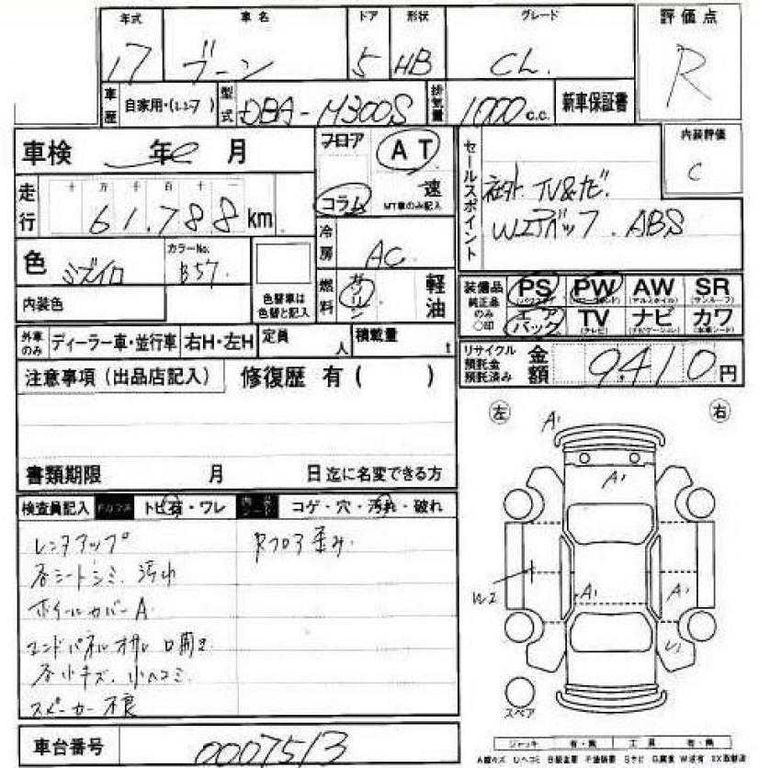 年式 車名 ドア 形状 グレード 評価点
17 ブーン 5 HB CL. R
車歴 自家用・(レンタ) 型式 DBA-M300S 排気量 1000 c.c. 新車保証書
車検 年 月
フロア AT
コラム 速
MT車のみ記入
セールスポイント
社外.TV&ナビ.
Wエアバッグ.ABS
内装評価
C
走行 十 万 千 百 十 一
61.788 km
冷房 AC
色 ミズイロ カラーNo. B57.
色替車は色替と記入
燃料 ガソリン 軽油
内装色
装備品 純正品のみ○印
PS PW AW SR
(パワステ) (パワーウインド) (アルミホイル) (サンルーフ)
エアバック TV ナビ カワ
(テレビ) (ナビゲーション) (本革シート)
外車のみ ディーラー車・並行車 右H・左H 定員 人 積載量 t
リサイクル預託金預託済み 金額 9.410 円
注意事項(出品店記入) 修復歴 有( )
書類期限 月 日迄に名変できる方
左 右
検査員記入 トビ石・ワレ コゲ・穴・汚れ・破れ
レンタアップ
各シートシミ.汚れ
ホイールカバーA.
各小キズ.小ヘコミ
スピーカー不良
A1
A1
W2
A1
A1
U1
スペア
車台番号 0007513
ジャッキ 有・無 工具 有・無